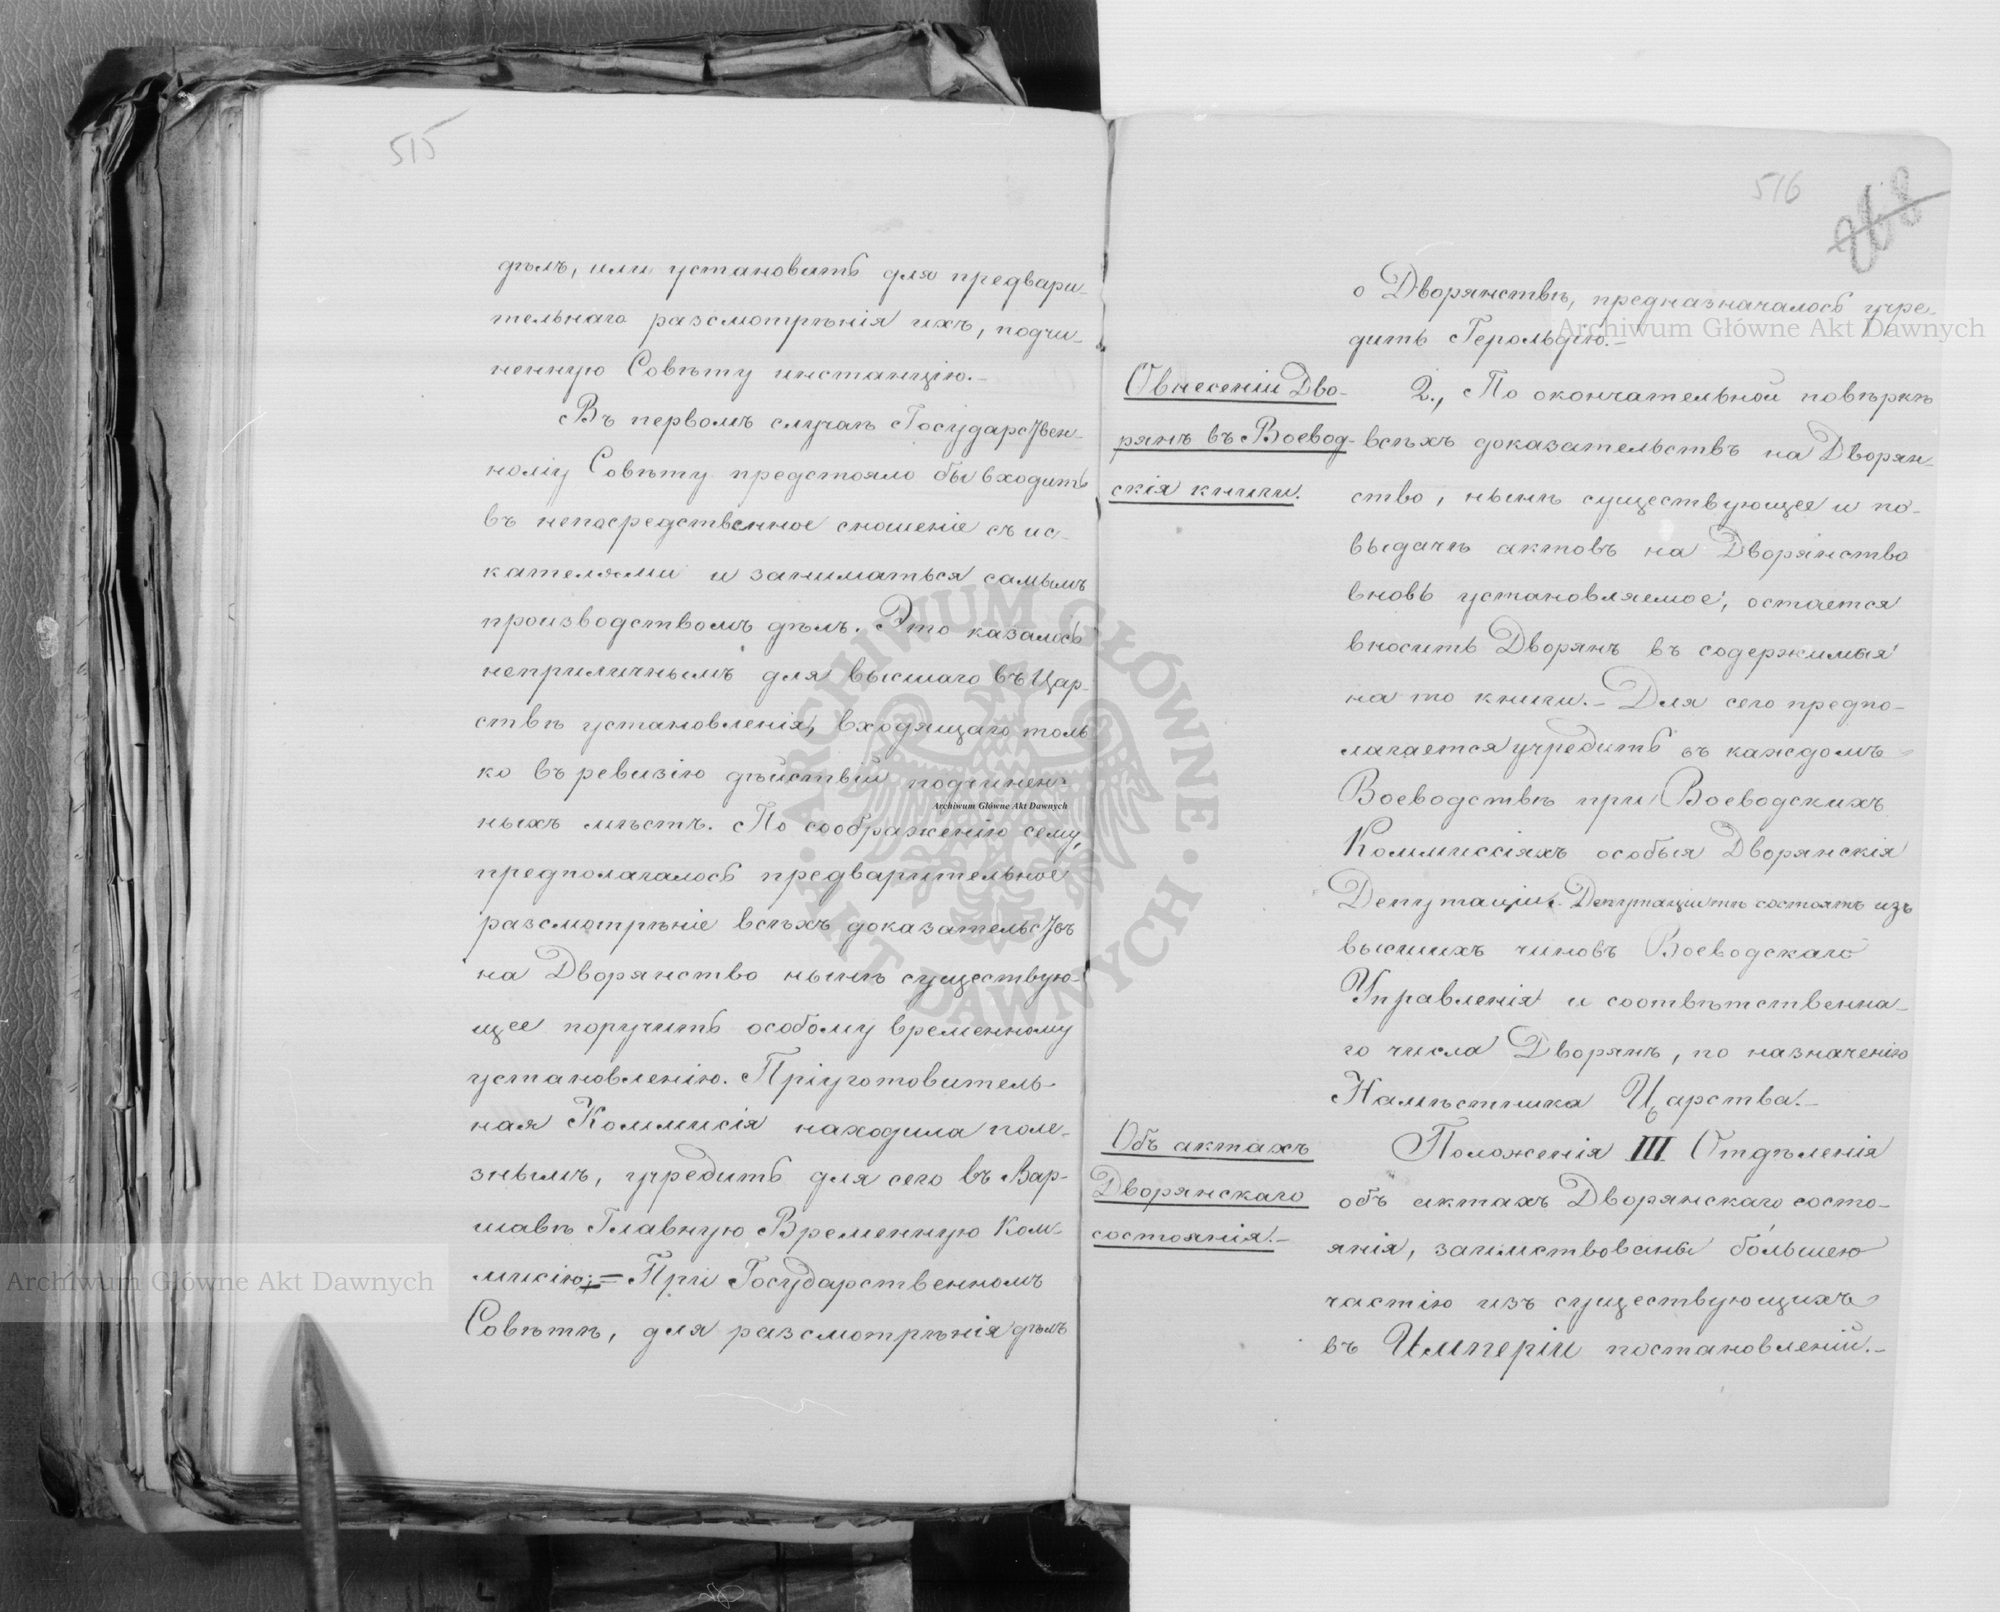 515
дѣлъ, или установить для предвари-
тельнаго разсмотрѣнія ихъ, подчи-
ненную Совѣту инстанцію.-
Въ первомъ случаѣ Государствен-
ному Совѣту предстояло бы входить
въ непосредственное сношеніе съ ис-
кателями и заниматься самымъ
производствомъ дѣлъ. Это казалось
неприличнымъ для высшаго въ Цар-
ствѣ установленія, входящаго толь
ко въ ревизію дѣйствій подчинен-
ныхъ мѣстъ. По соображенію сему,
предполагалось предварительное
разсмотрѣніе всѣхъ доказательствъ
на Дворянство нынѣ существую-
щее поручить особому временному
установленію. Пріуготовитель-
ная Коммисія находила поле-
знымъ, учредить для сего въ Вар-
шавѣ Главную Временную Ком-
мисію;= При Государственномъ
Совѣтѣ, для разсмотрѣнія дѣлъ
516
о Дворянствѣ, предназначалось учре-
дить Герольдію.-
О внесеніи Дво-
рянъ въ Воевод-
скія книги.
2., По окончательной повѣркѣ
всѣхъ доказательствъ на Дворян-
ство, нынѣ существующее и по-
выдачѣ актовъ на Дворянство
вновь установляемое, остается
вносить Дворянъ въ содержимыя
на то книги.- Для сего предпо-
лагается учредить въ каждомъ
Воеводствѣ при Воеводскихъ
Коммиссіяхъ особыя Дворянскія
Депутаціи. Депутаціи тѣ состоятъ изъ
высшихъ чиновъ Воеводскаго
Управленія и соотвѣтственна-
го числа Дворянъ, по назначенію
Намѣстника Царства.-
Объ актахъ
Дворянскаго
состоянія.-
Положенія III Отдѣленія
объ актахъ Дворянскаго состо-
янія, заимствованы большею
частію изъ существующихъ
въ Имперіи постановленій.-
Archiwum Główne Akt Dawnych
Archiwum Główne Akt Dawnych
Archiwum Główne Akt Dawnych
ARCHIWUM GŁÓWNE AKT DAWNYCH